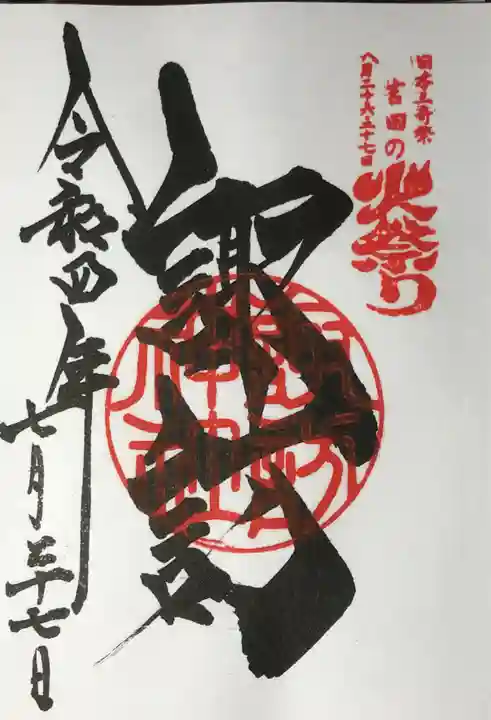 日本三奇祭
吉田の火祭り
八月二十六・二十七日
諏訪
令和四年七月二十七日